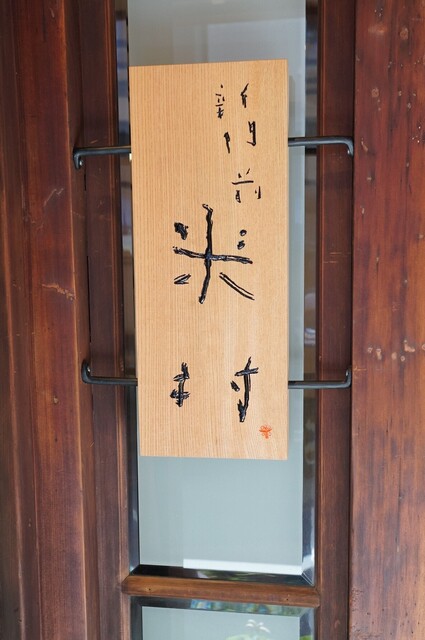 新門前
米村